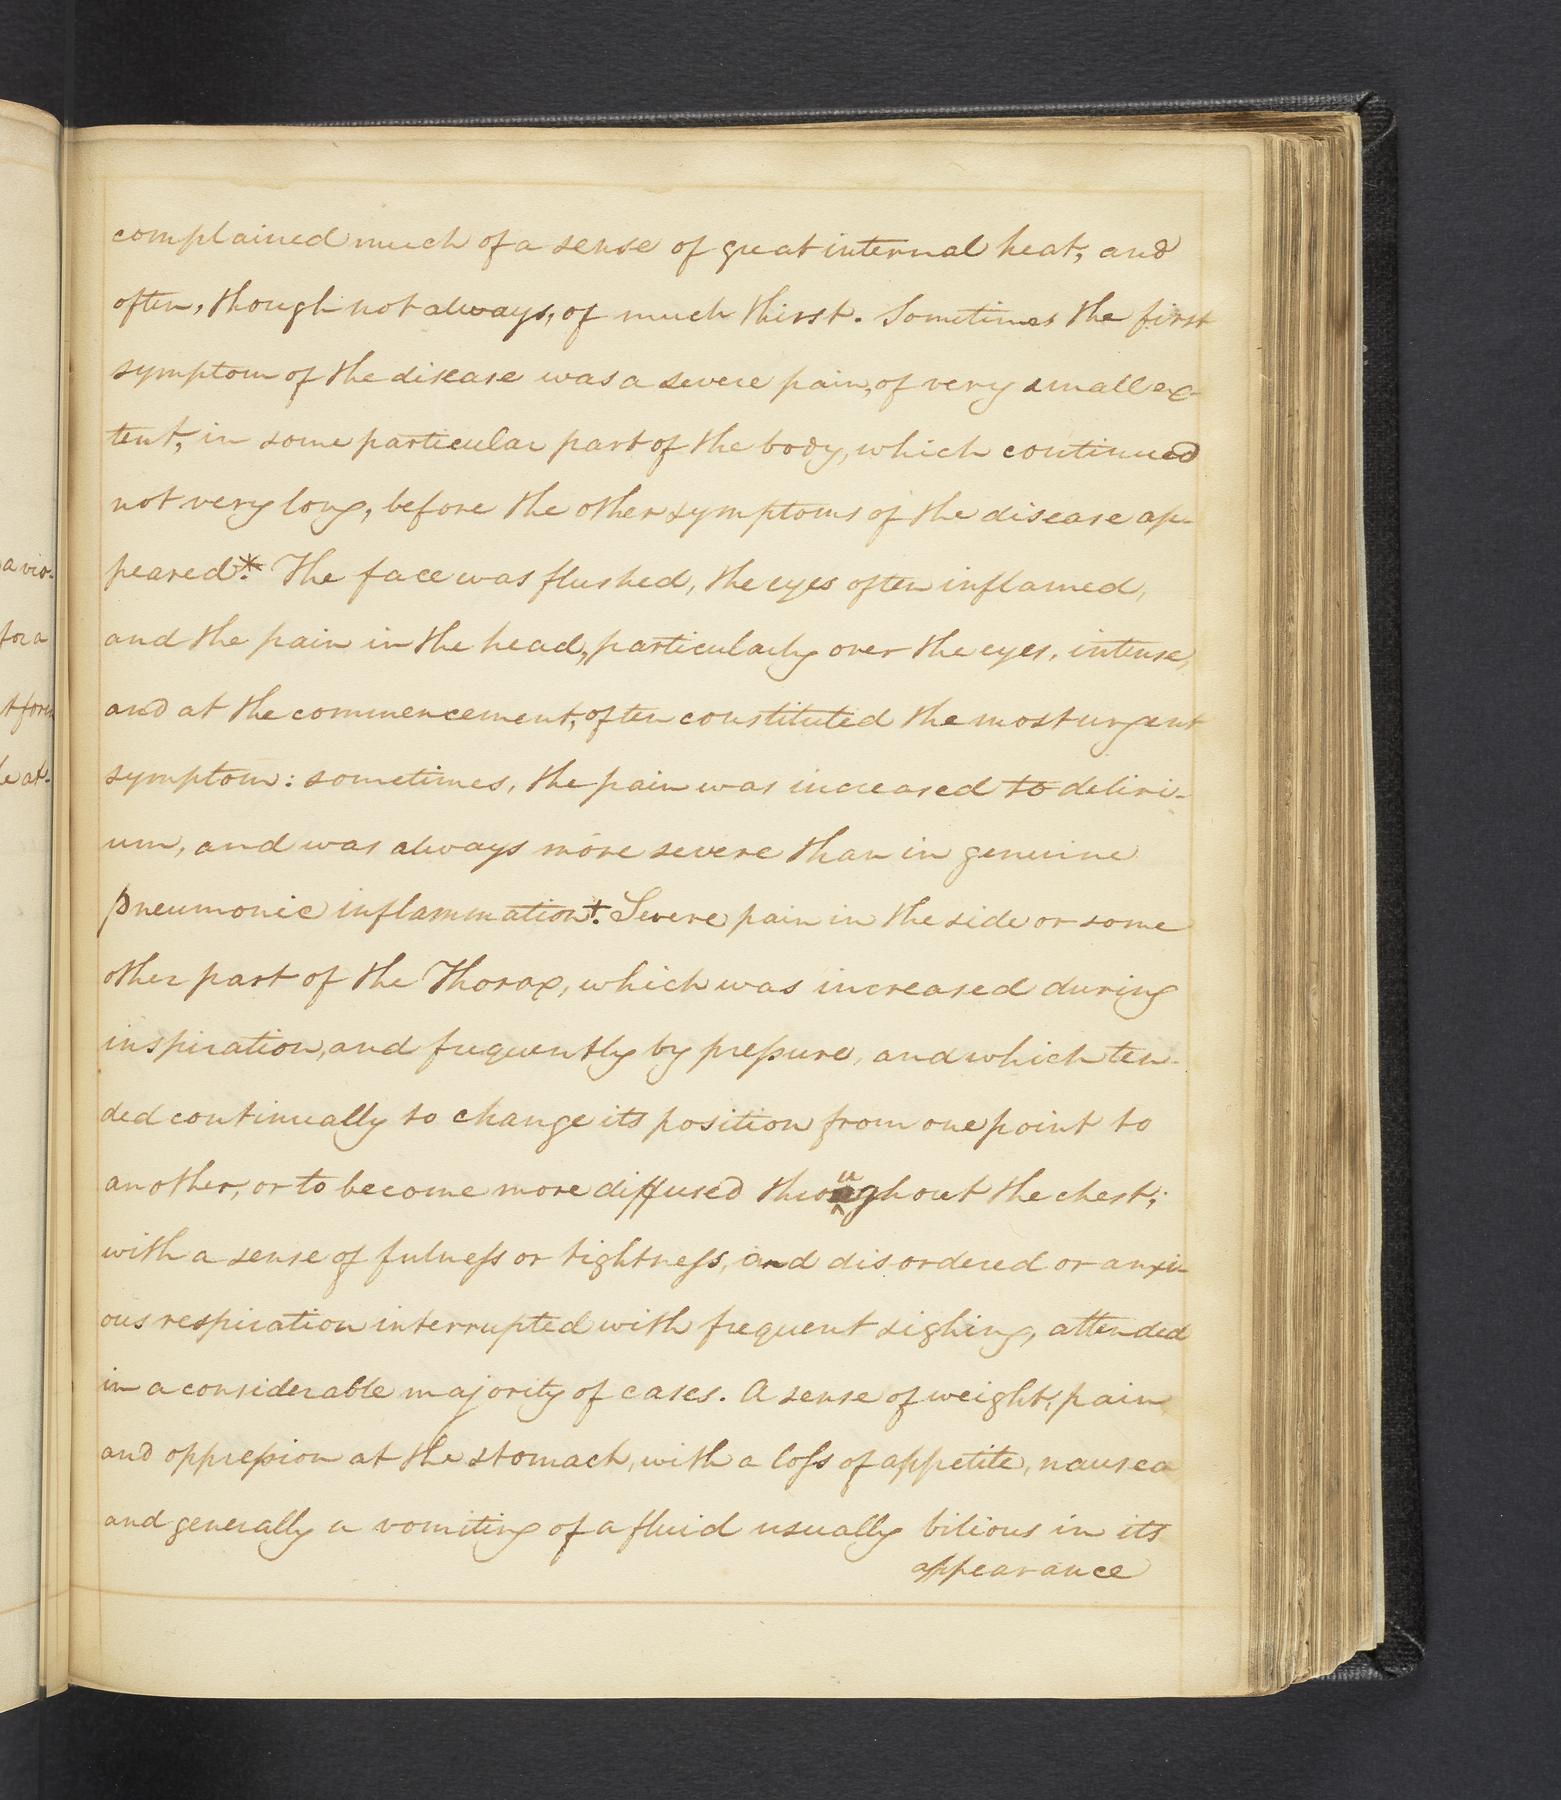 complained much of a sense of great internal heat, and
often, though not always, of much thirst. Sometimes the first
symptom of the disease was a severe pain, of very small ex-
tent, in some particular part of the body, which continued
not very long, before the other symptoms of the disease ap-
peared*. The face was flushed, the eyes often inflamed,
and the pain in the head, particularly over the eyes, intense,
and at the commencement, often constituted the most urgent
symptom: sometimes, the pain was increased to deliri-
um, and was always more severe than in genuine
pneumonic inflammation†. Severe pain in the side or some
other part of the Thorax, which was increased during
inspiration, and frequently by preſsure, and which ten-
ded continually to change its position from one point to
another, or to become more diffused throughout the chest;
with a sense of fulneſs or tightneſs, and disordered or anxi-
ous respiration interrupted with frequent sighing, attended
in a considerable majority of cases. A sense of weight, pain
and oppreſsion at the stomach, with a loſs of appetite, nausea
and generally a vomiting of a fluid usually bilious in its
appearance
a vio-
for a
t form
le at-